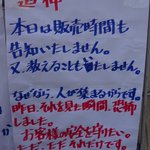 追伸
本日は販売時間も
告知いたしません。
又、教えることも致しません。
なぜなら、人が集まるからです。
昨日、それを見た瞬間、恐怖
しました。
お客様の安全を守りたい。
ただ、ただ それだけです。